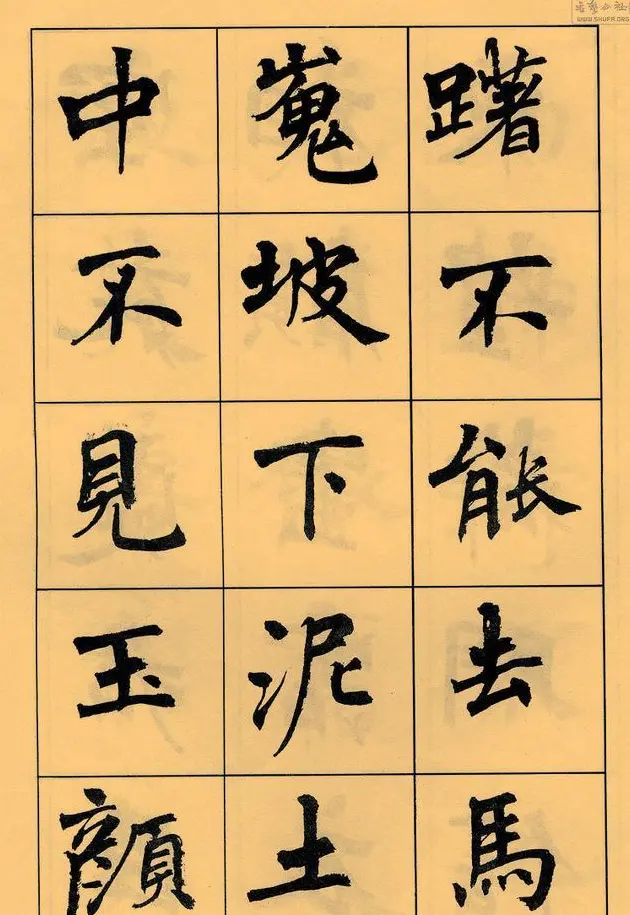 躇不能去馬
嵬坡下泥土
中不見玉顏
WWW.SHUFA.ORG